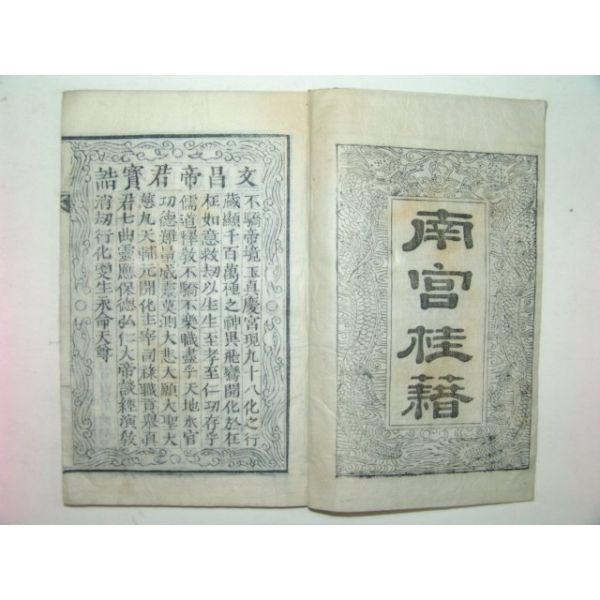 南宮桂籍
文昌帝君寶誥
不驕帝境玉真慶宮現九十八化之行
藏顯千百萬種之神異飛鸞開化於在
在如意救劫以生生至孝至仁功存乎
儒道釋教不驕不樂職盡乎天地水官
功德難量威靈莫測大悲大願大聖大
慈九天輔元開化主宰司祿職貢舉真
君七曲靈應保德弘仁大帝談經演教
消劫行化更生永命天尊